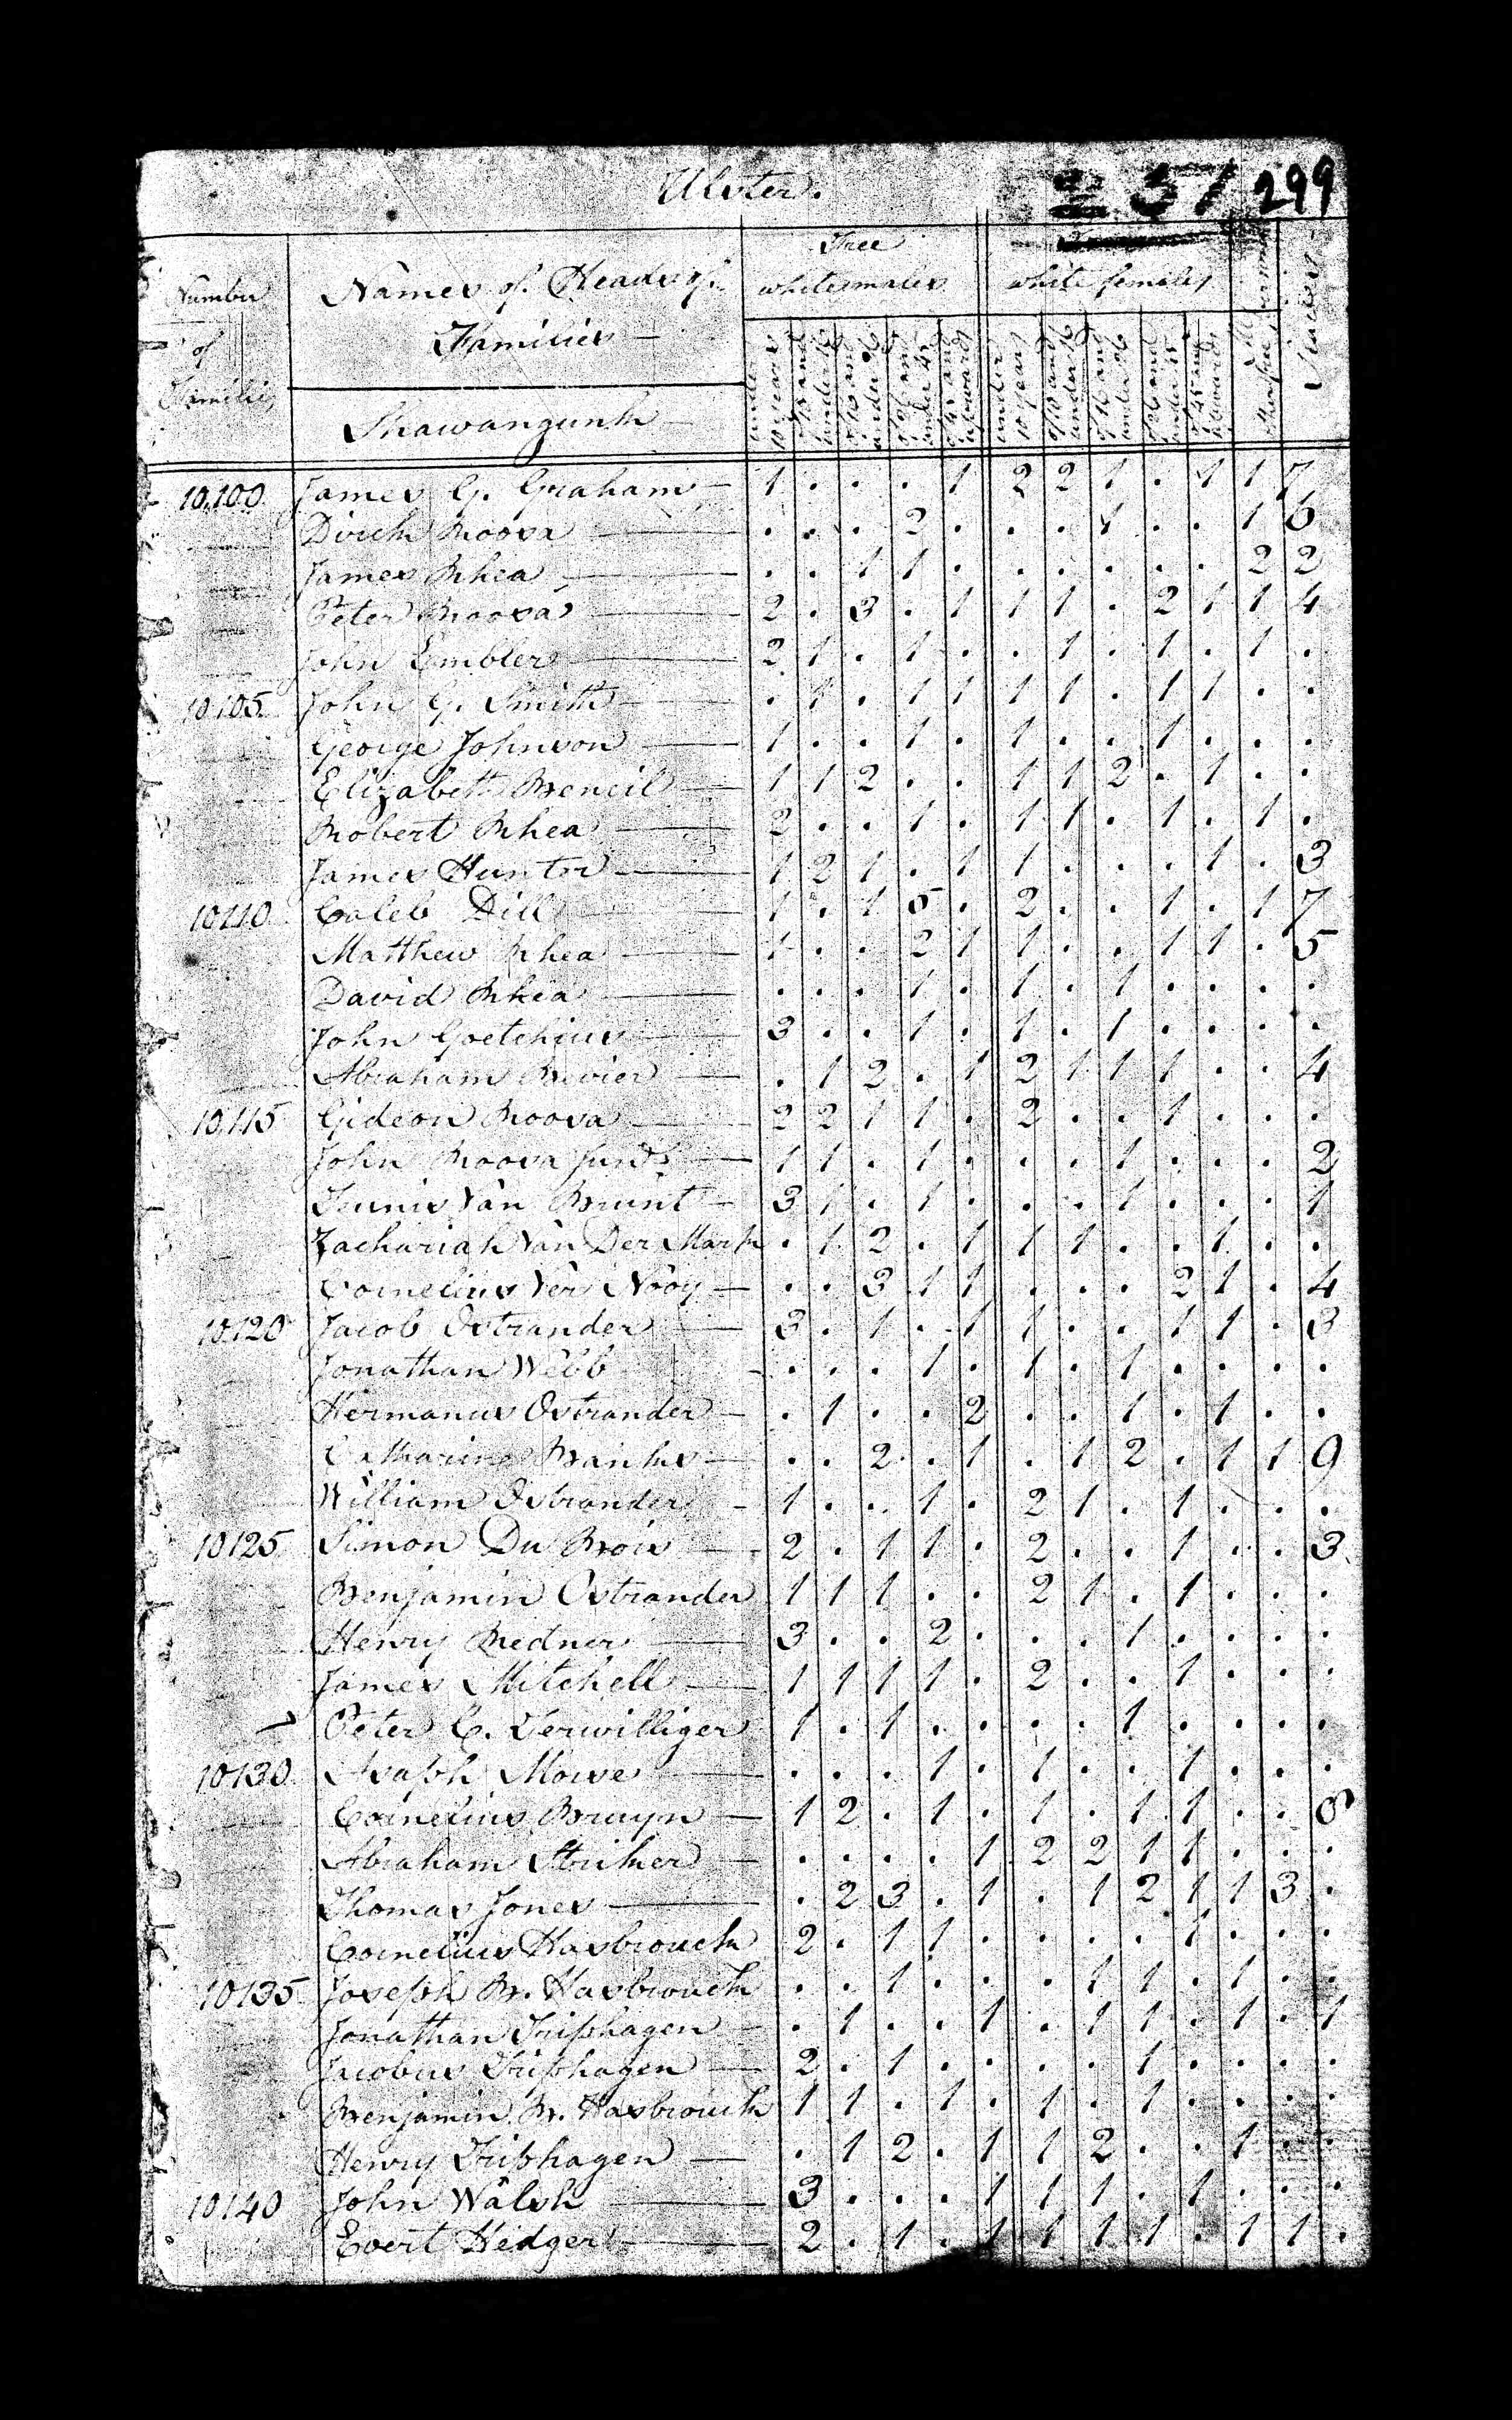 Ulster.
37 299
Number of Families
Names of Heads of Families
Shawangunk
Free white males
white females
under 10 years
of 10 and under 16
of 16 and under 26
of 26 and under 45
of 45 and upwards
under 10 years
of 10 and under 16
of 16 and under 26
of 26 and under 45
of 45 and upwards
10,100 James G. Graham 1 . . . 1 2 2 1 . 1 1 7
Dirck Roosa . . . 2 . . . 1 . . 1 6
James Rhea . . 1 1 . . . . . . 2 2
Peter Roosa 2 . 3 . 1 1 1 . 2 1 1 4
John Embler 2 1 . 1 . . 1 . 1 . 1 .
10105 John G. Smith . 1 . 1 1 1 1 . 1 1 . .
George Johnson 1 . . 1 . 1 . . 1 . . .
Elizabeth Beneil 1 1 2 . . 1 1 2 . 1 . .
Robert Rhea 2 . . 1 . 1 1 . 1 . 1 .
James Hunter 1 2 1 . 1 1 . . . 1 . 3
10110 Caleb Dill 1 . 1 5 . 2 . . 1 . 1 7
Matthew Rhea 1 . . 2 1 1 . . 1 1 . 5
David Rhea . . . 1 . 1 . 1 . . . .
John Goetchius 3 . . 1 . 1 . 1 . . . .
Abraham Bevier . 1 2 . 1 2 1 1 1 . . 4
10,115 Gideon Roosa 2 2 1 1 . 2 . . 1 . . .
John Roosa Junr. 1 1 . 1 . . . 1 . . . 2
Teunis Van Brunt 3 1 . 1 . . . 1 . . . 1
Zachariah Van Der Mark . 1 2 . 1 1 1 . . 1 . .
Cornelius Ver Nooy . . 3 1 1 . . . 2 1 . 4
10,120 Jacob Ostrander 3 . 1 . 1 1 . . 1 1 . 3
Jonathan Webb . . . 1 . 1 . 1 . . . .
Hermanus Ostrander . 1 . . 2 . . 1 . 1 . .
Catharine Banks . . 2 . 1 . 1 2 . 1 1 9
William Ostrander 1 . . 1 . 2 1 . 1 . . .
10125 Simon Du Bois 2 . 1 1 . 2 . . 1 . . 3
Benjamin Ostrander 1 1 1 . . 2 1 . 1 . . .
Henry Redner 3 . . 2 . . . 1 . . . .
James Mitchell 1 1 1 1 . 2 . . 1 . . .
Peter C. Terwilliger 1 . 1 . . . . 1 . . . .
10130 Asaph Morse . . . 1 . 1 . . 1 . . .
Cornelius Bruyn 1 2 . 1 . 1 . 1 1 . . 8
Abraham Striker . . . . 1 2 2 1 1 . . .
Thomas Jones . 2 3 . 1 . 1 2 1 1 3 .
Cornelius Hasbrouck 2 . 1 1 . . . . 1 . . .
10135 Joseph B. Hasbrouck . . 1 . . . 1 1 . 1 . .
Jonathan Triphagen . 1 . . 1 . 1 1 . 1 . 1
Jacobus Triphagen 2 . 1 . . . . 1 . . . .
Benjamin B. Hasbrouck 1 1 . 1 . 1 . 1 . . . .
Henry Triphagen . 1 2 . 1 1 2 . . 1 . .
10140 John Walsh 3 . . . 1 1 1 . 1 . . .
Evert Hedger 2 . 1 . 1 1 1 1 . 1 1 .